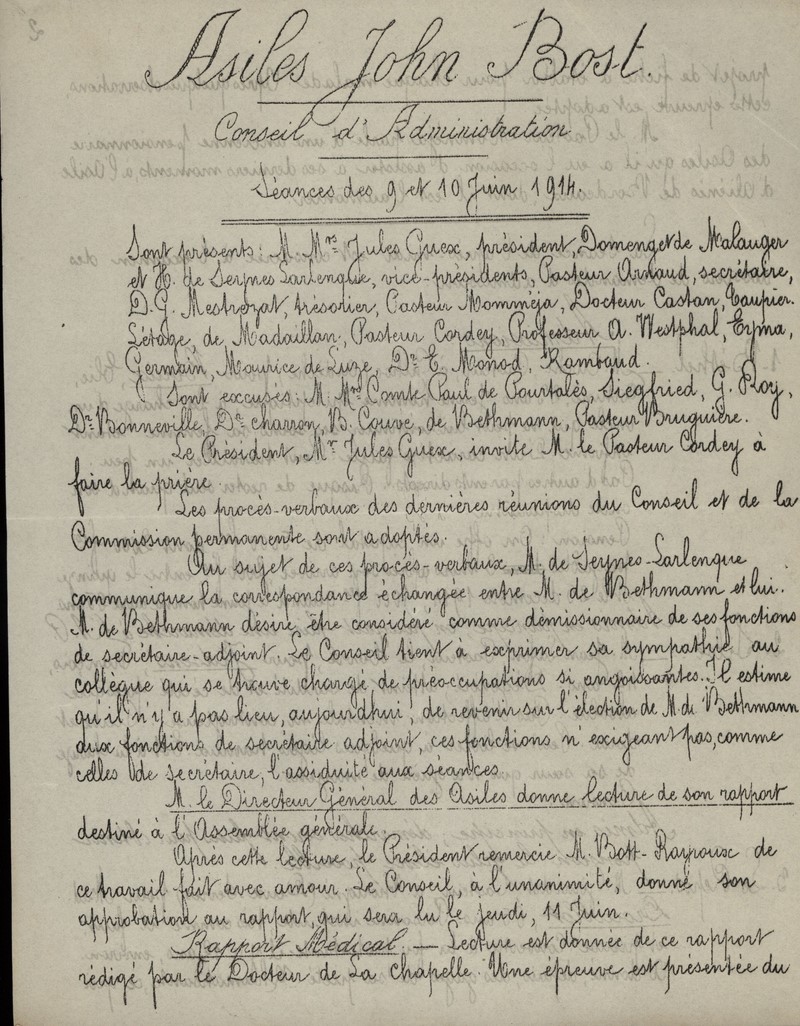 Asiles John Bost.
Conseil d'Administration
Séances des 9 et 10 Juin 1914.
Sont présents: M. Mrs Jules Guex, président, Domenget de Malauger
et H. de Seynes Larlenque, vice-présidents, Pasteur Arnaud, secrétaire,
D. G. Mestrezat, trésorier, Pasteur Momméja, Docteur Castan, Taupier-
Létage, de Madaillan, Pasteur Cordey, Professeur A. Westphal, Eyma,
Germain, Maurice de Luze, Dr E. Monod, Rambaud.
Sont excusés: M. Mrs Comte Paul de Pourtalès, Siegfried, G. Roy,
Dr Bonneville, Dr Charron, B. Couve, de Bethmann, Pasteur Bruguière.
Le Président, Mr Jules Guex, invite M. le Pasteur Cordey à
faire la prière.
Les procès-verbaux des dernières réunions du Conseil et de la
Commission permanente sont adoptés.
Au sujet de ces procès-verbaux, M. de Seynes-Larlenque
communique la correspondance échangée entre M. de Bethmann et lui.
M. de Bethmann désire être considéré comme démissionnaire de ses fonctions
de secrétaire-adjoint. Le Conseil tient à exprimer sa sympathie au
collègue qui se trouve chargé de préoccupations si angoissantes. Il estime
qu'il n'y a pas lieu, aujourdhui, de revenir sur l'élection de M. de Bethmann
aux fonctions de secrétaire adjoint, ces fonctions n'exigeant pas, comme
celles de secrétaire, l'assiduité aux séances.
M. le Directeur Général des Asiles donne lecture de son rapport
destiné à l'Assemblée générale.
Après cette lecture, le Président remercie M. Bott-Rayroux de
ce travail fait avec amour. Le Conseil, à l'unanimité, donne son
approbation au rapport, qui sera lu le jeudi, 11 Juin.
Rapport Médical. — Lecture est donnée de ce rapport
rédigé par le Docteur de La Chapelle. Une épreuve est présentée du